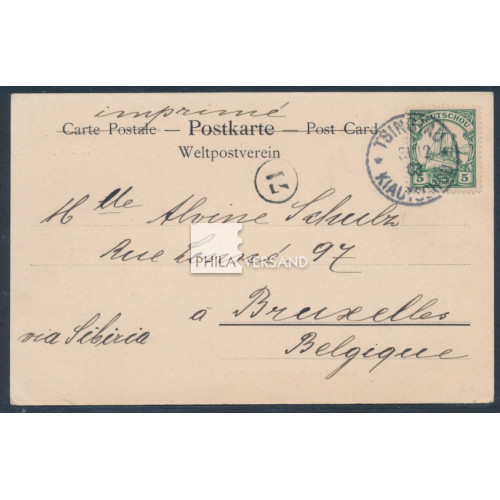 imprimé
Carte Postale — Postkarte — Post Card
Weltpostverein
KIAUTSCHOU
5 5
TSINGTAU
KIAUTSCHOU
Mlle Alvine Schulz
Rue 97
PHILA VERSAND
à Bruxelles
via Sibiria
Belgique